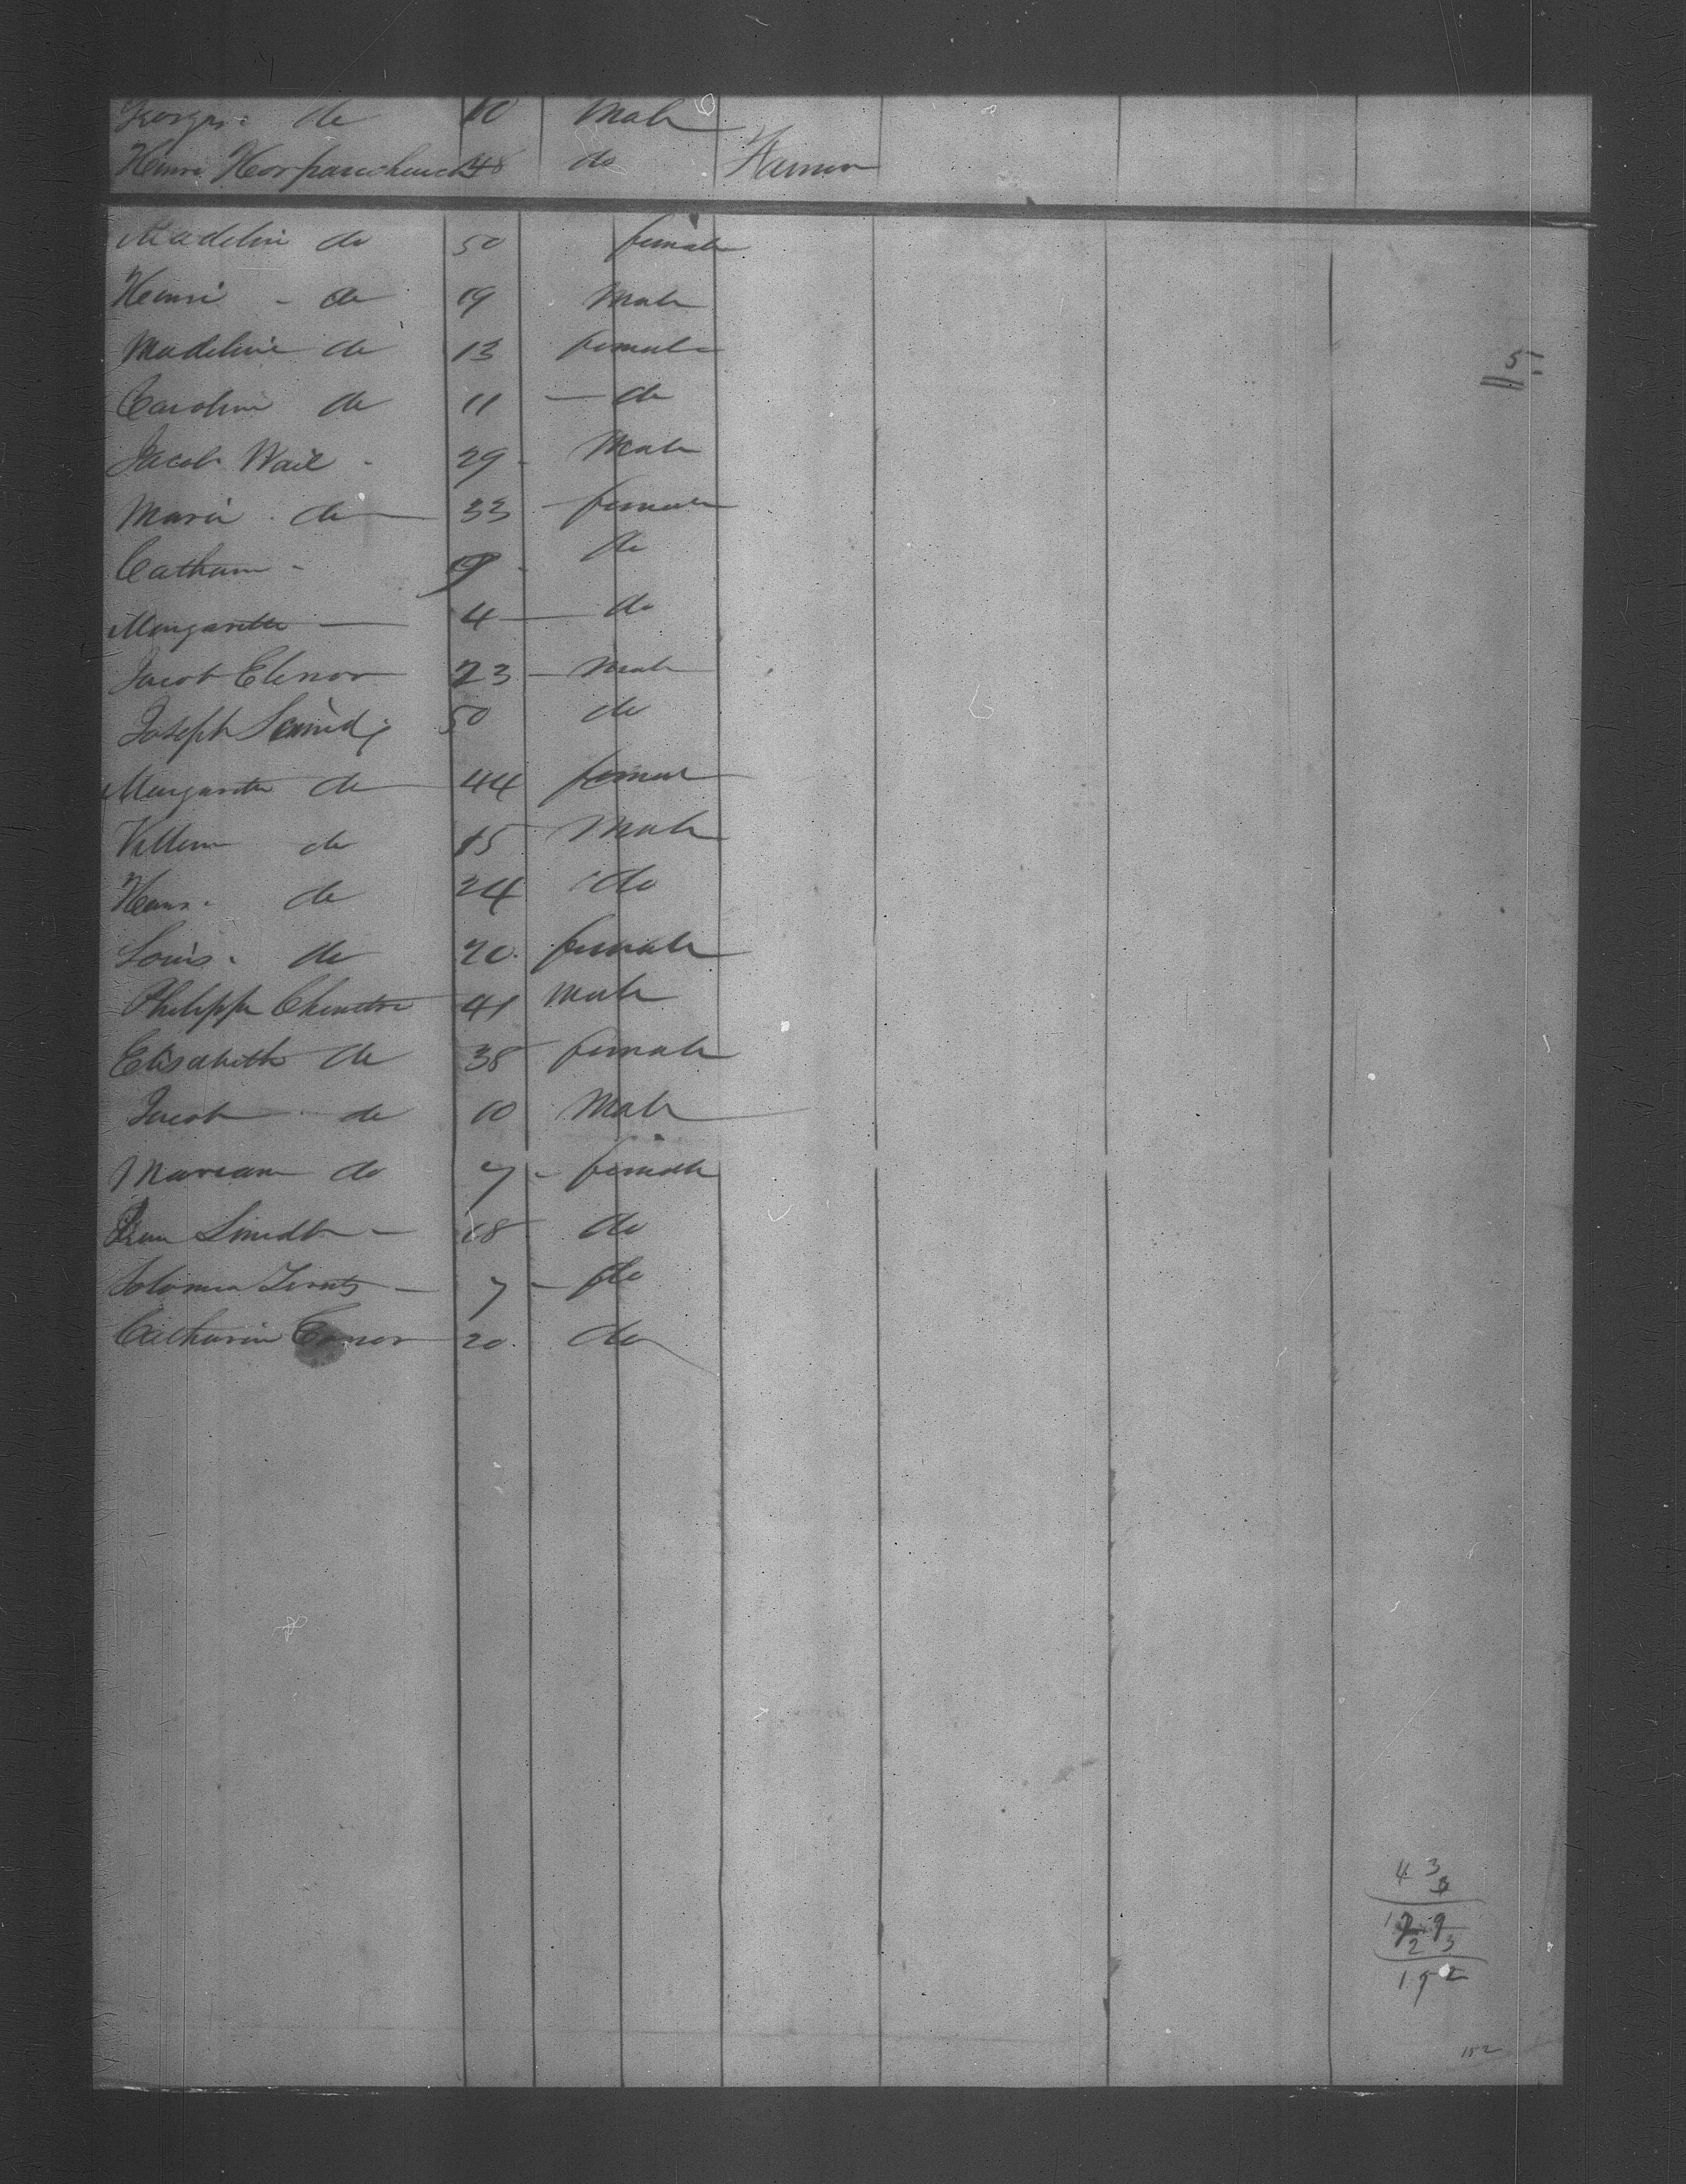 George do 10 Male
Henri 48 do Farmer
Madeline do 50 female
Henri - do 19 Male
Madeline do 13 female
Caroline do 11 - do
Jacob Wail - 29 - Male
Maria do 33 - female
Catharin - 9 - do
Margarette - 4 - do
Jacob Elenor 23 - Male
Joseph 50 do
Margarette do 44 female
Villem do 15 Male
Henri do 24 do
Louis do 20 female
Philippe 41 Male
Elisabeth do 38 female
Jacob do 10 Male
Mariam do 7 - female
18 do
7 - do
Catharin 20 do
5
43
129
23
152
152